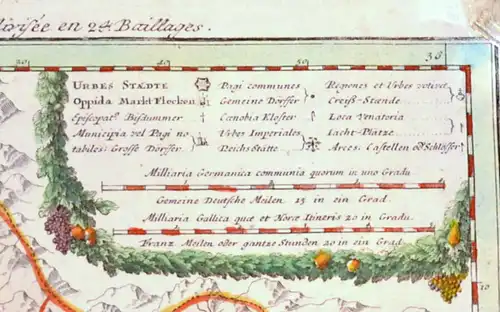 divisée en 24. Baillages.
50 40 50 36
URBES STÄDTE Pagi communes Regiones et Urbes votivæ
Oppida Markt Flecken Gemeine Dörffer Creiß-Stände
Episcopat9 Bisdummer Cœnobia Klöster Loca Venatoria
Municipia vel Pagi no Urbes Imperiales Iacht-Plätze
tabiles. Grosse Dörffer Reichs Stätte Arces. Castellen od. Schlösser
Milliaria Germanica communia quorum in uno Gradu
Gemeine Deutsche Meilen 15 in ein Grad
Milliaria Gallica quæ et Horæ Itineris 20 in Gradu.
Franz Meilen oder gantze Stunden 20 in ein Grad
10